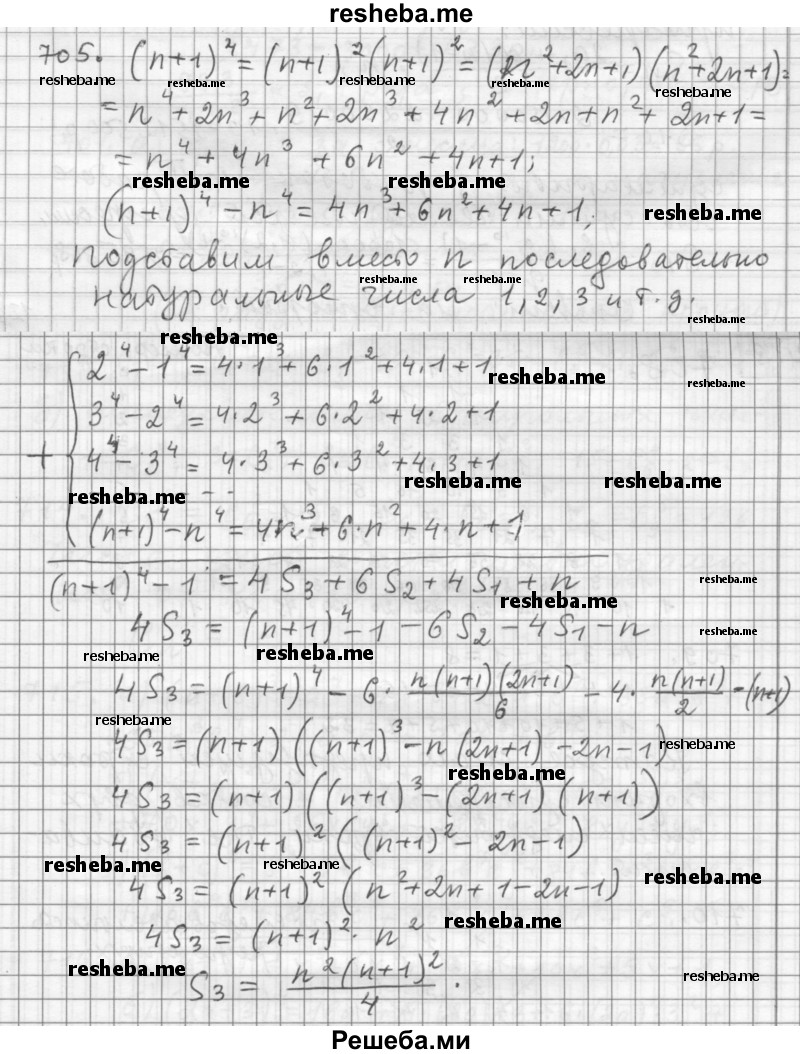 resheba.me
705. (n+1)^4 = (n+1)^2 (n+1)^2 = (n^2+2n+1)(n^2+2n+1) =
resheba.me resheba.me resheba.me resheba.me resheba.me
= n^4 + 2n^3 + n^2 + 2n^3 + 4n^2 + 2n + n^2 + 2n + 1 =
= n^4 + 4n^3 + 6n^2 + 4n + 1;
resheba.me resheba.me
(n+1)^4 - n^4 = 4n^3 + 6n^2 + 4n + 1; resheba.me
Подставим вместо n последовательно
resheba.me resheba.me
натуральные числа 1, 2, 3 и т.д.
resheba.me
resheba.me
2^4 - 1^4 = 4·1^3 + 6·1^2 + 4·1 + 1
resheba.me resheba.me
3^4 - 2^4 = 4·2^3 + 6·2^2 + 4·2 + 1
+ 4^4 - 3^4 = 4·3^3 + 6·3^2 + 4·3 + 1
resheba.me resheba.me
resheba.me - - -
(n+1)^4 - n^4 = 4n^3 + 6·n^2 + 4·n + 1
(n+1)^4 - 1 = 4S3 + 6S2 + 4S1 + n resheba.me
resheba.me
4S3 = (n+1)^4 - 1 - 6S2 - 4S1 - n resheba.me
resheba.me resheba.me
4S3 = (n+1)^4 - 6· n(n+1)(2n+1)/6 - 4· n(n+1)/2 - (n+1)
resheba.me
4S3 = (n+1)((n+1)^3 - n(2n+1) - 2n - 1) resheba.me
resheba.me
4S3 = (n+1)((n+1)^3 - (2n+1)(n+1))
4S3 = (n+1)^2((n+1)^2 - 2n - 1)
resheba.me resheba.me
4S3 = (n+1)^2 (n^2+2n+1-2n-1) resheba.me
resheba.me
4S3 = (n+1)^2 · n^2
resheba.me resheba.me
S3 = n^2(n+1)^2/4.
Решеба.ми